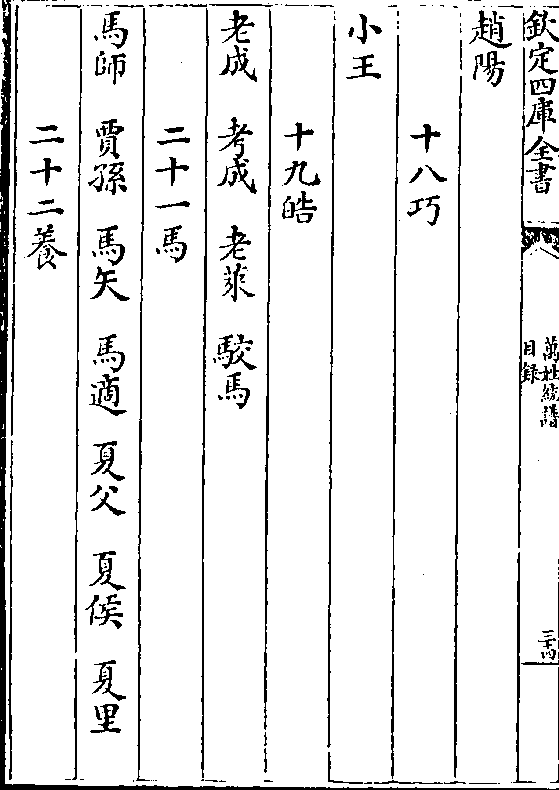 欽定四庫全書
萬姓統譜
目錄
趙陽
十八巧
小王
十九皓
老成 考成 老萊 駮馬
二十一馬
馬師 賈孫 馬矢 馬適 夏父 夏侯 夏里
二十二養